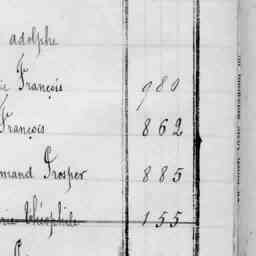 adolphe
François 980
François 862
mand Prosper 885
rie Théophile 155